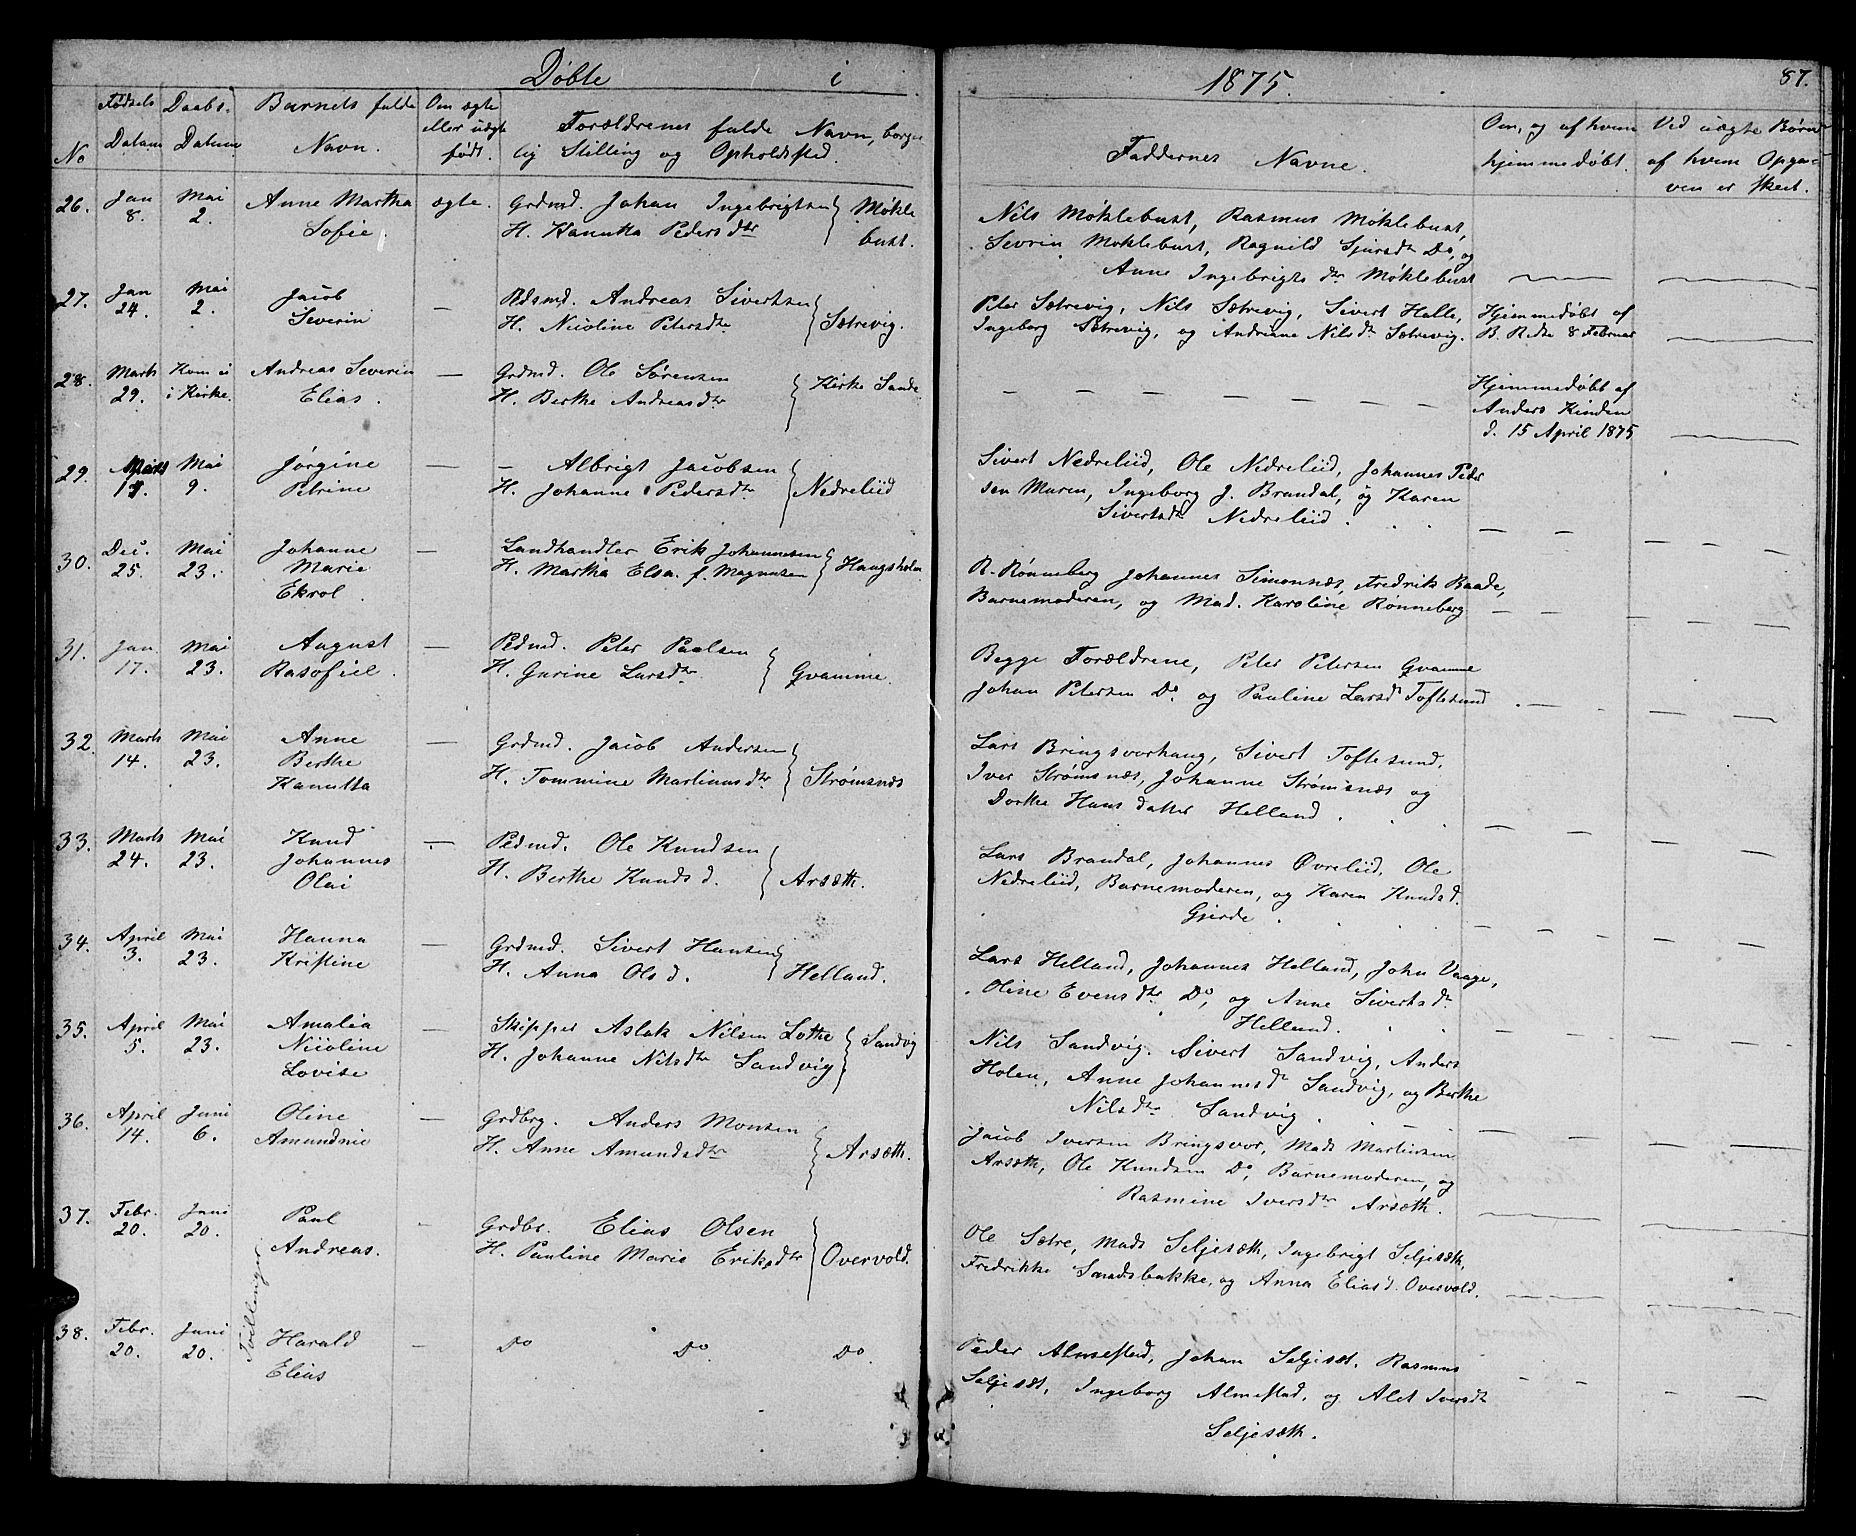 Døbte i 1875. 87.
No
Fødsels Datum
Daabs. Datum
Barnets fulde Navn.
Om ægte eller uægte født.
Forældrenes fulde Navn, borger
lig Stilling og Opholdsted.
Faddernes Navne.
Om, og af hvem hjemmedøbt.
Ved uægte Børn af hvem Opga-
ven er skeet.
26. Jan 8. Mai 2. Anne Martha Sofie. ægte. Grdmd. Johan Ingebrigtsen
H. Kanutta Pedersdtr Møkle
bust.
Nils Møklebust, Rasmus Møklebust,
Sevrin Møklebust, Ragnild Sjursdtr Do, og
Anne Ingebrigtsdtr Møklebust
27. Jan 24. Mai 2. Jacob Severin — Pdsmd. Andreas Sivertsen
H. Nicoline Petersdtr Sætrevig.
Peter Sætrevig, Nils Sætrevig, Sivert Helle,
Ingeborg Sætrevig, og Andriane Nilsdtr Sætrevig.
Hjemmedøbt af
B. Redte 8 Februar
28. Marts 29. Kom ei i Kirke. Andreas Severin Elias. — Grdmd. Ole Sørensen
H. Berthe Andreasdtr Kirke Sande
— — — — — — —
Hjemmedøbt af
Anders Kinden
d. 15 April 1875
29. Marts 19. Mai 9. Jørgine Petrine — — Albrigt Jacobsen
H. Johanne Pedersdtr Nedreliid
Sivert Nedreliid, Ole Nedreliid, Johannes Peder
sen Muren, Ingeborg J. Brandal, og Karen
Sivertsdtr Nedreliid.
30. Dec. 25. Mai 23. Johanne Marie Ekrol. — Landhandler Erik Johannesen
H. Martha Elsa. f. Magnusen Haugsholm
R. Rønneberg Johannes Simonnæs, Fredrik Baade,
Barnemoderen, og Mad. Karoline Rønneberg
31. Jan. 17. Mai 23. August Rasofiel. — Pdsmd. Peter Paulsen
H. Gurine Larsdtr Gvamme.
Begge Forældrene, Peter Petersen Gvamme
Johan Petersen Do. og Pauline Larsdtr Toftesund
32. Marts 14. Mai 23. Anne Berthe Kanutta — Grdmd. Jacob Andersen
H. Tommine Martinusdtr Strømsnæs
Lars Bringsvorhaug, Sivert Toftesund,
Iver Strømsnæs, Johanne Strømsnæs og
Dorthe Hans datter Helland.
33. Marts 24. Mai 23. Knud Johannes Olai — Pdsmd. Ole Knudsen
H. Berthe Knudsd. Arsæth.
Lars Brandal, Johannes Øvreliid, Ole
Nedreliid, Barnemoderen, og Karen Knudsd.
Gjerde.
34. April 3. Mai 23. Hanna Kristine — Grdmd. Sivert Hansen
H. Anna Olsd. Helland.
Lars Helland, Johannes Helland, John Vaage,
Oline Evensdtr Do, og Anne Sivertsdtr
Helland.
35. April 5. Mai 23. Amalia Nicoline Lovise — Skipper Aslak Nilsen Lothe
H. Johanne Nilsdtr Sandvig Sandvig
Nils Sandvig. Sivert Sandvig, Anders
Holen, Anne Johannesdtr Sandvig, og Berthe
Nilsdtr Sandvig.
36. April 14. Juni 6. Oline Amundine — Grdbrg. Anders Monsen
H. Anne Amundsdtr Arsæth.
Jacob Iversen Bringsvor, Mads Martinsen
Arsæth, Ole Knudsen Do, Barnemoderen, og
Rasmine Iversdtr Arsæth.
37. Febr. 20. Juni 20. Paul Andreas. — Grdbr. Elias Olsen
H. Pauline Marie Eriksdtr Overvold.
Ole Sætre, Mads Seljesæth, Ingebrigt Seljesæth,
Fredrikke Sandsbakke, og Anna Eliasd. Overvold.
Tvillinger
38. Febr. 20. Juni 20. Harald Elias — Do Do. Do.
Peder Almestad, Johan Seljesæt, Rasmus
Seljesæt, Ingeborg Almestad, og Alet Iversdtr
Seljesæth.